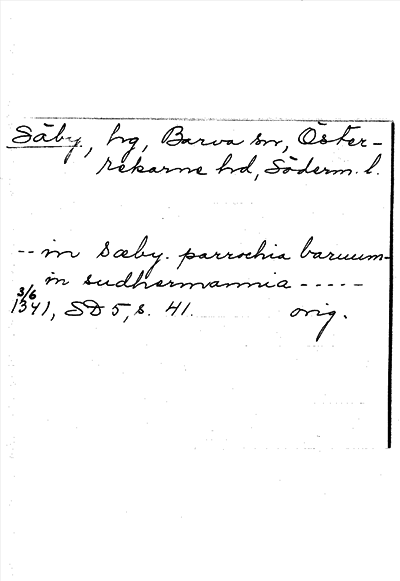 Säby, hg, Barva sn, Öster-
rekarne hd, Söderm. l.
-- in Sæby. parrochia baruum-
in sudhermannia -----
3/6
1341, SD 5, s. 41. orig.